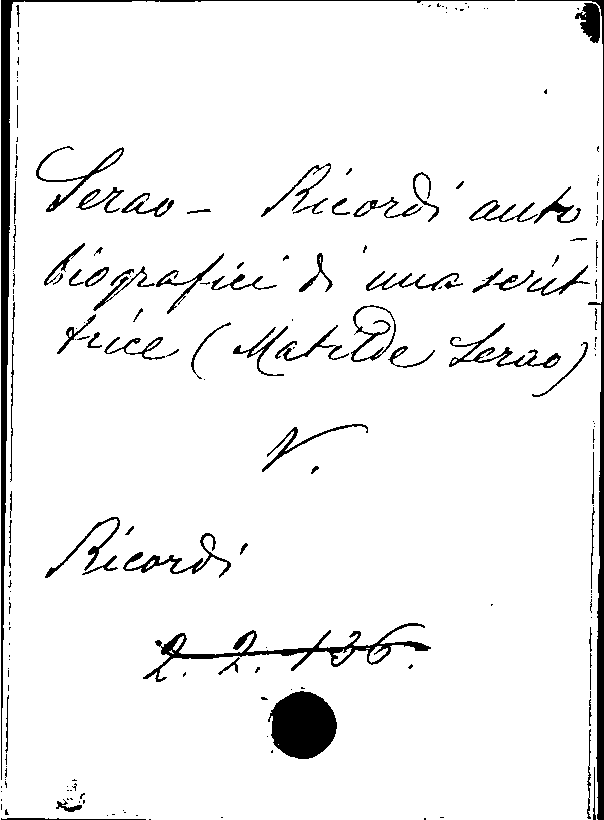 Serao - Ricordi auto-
biografici di una scrit-
trice (Matilde Serao)
V.
Ricordi
2. 2. 136.